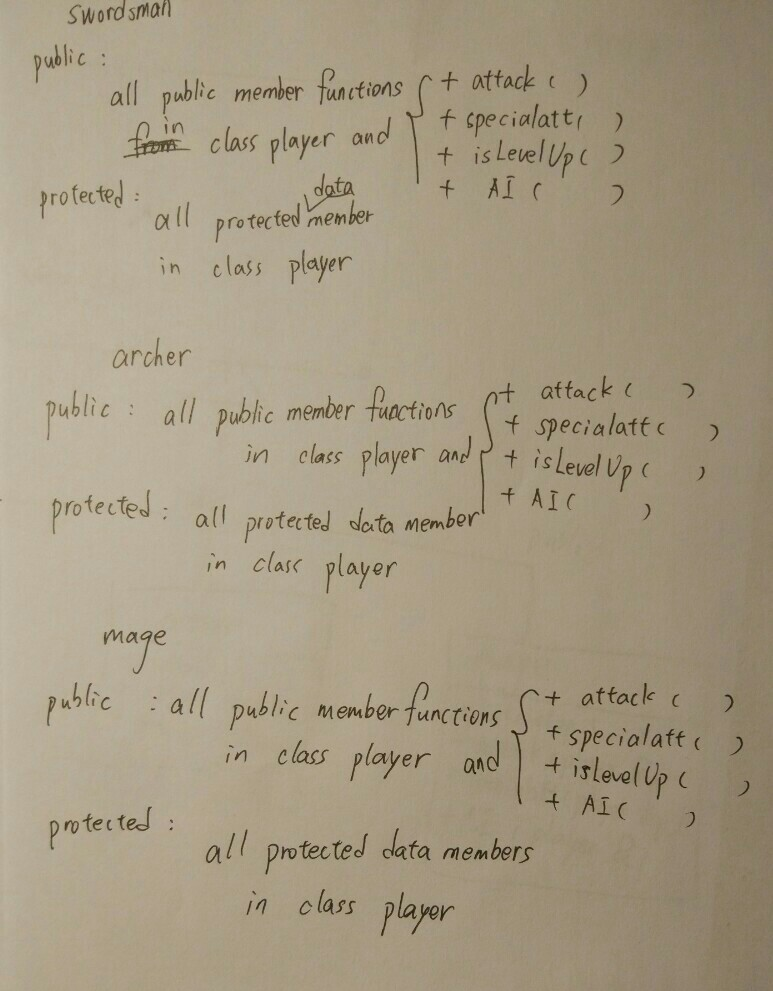 swordsman
public :
all public member functions { + attack ( )
from in class player and + specialatt( )
+ isLevelUp ( )
protected : + AI ( )
data
all protected member
in class player
archer
public : all public member functions { + attack ( )
in class player and + specialatt ( )
+ isLevelUp ( )
protected : + AI ( )
all protected data member
in class player
mage
public : all public member functions { + attack ( )
in class player and + specialatt ( )
+ isLevelUp ( )
+ AI ( )
protected :
all protected data members
in class player